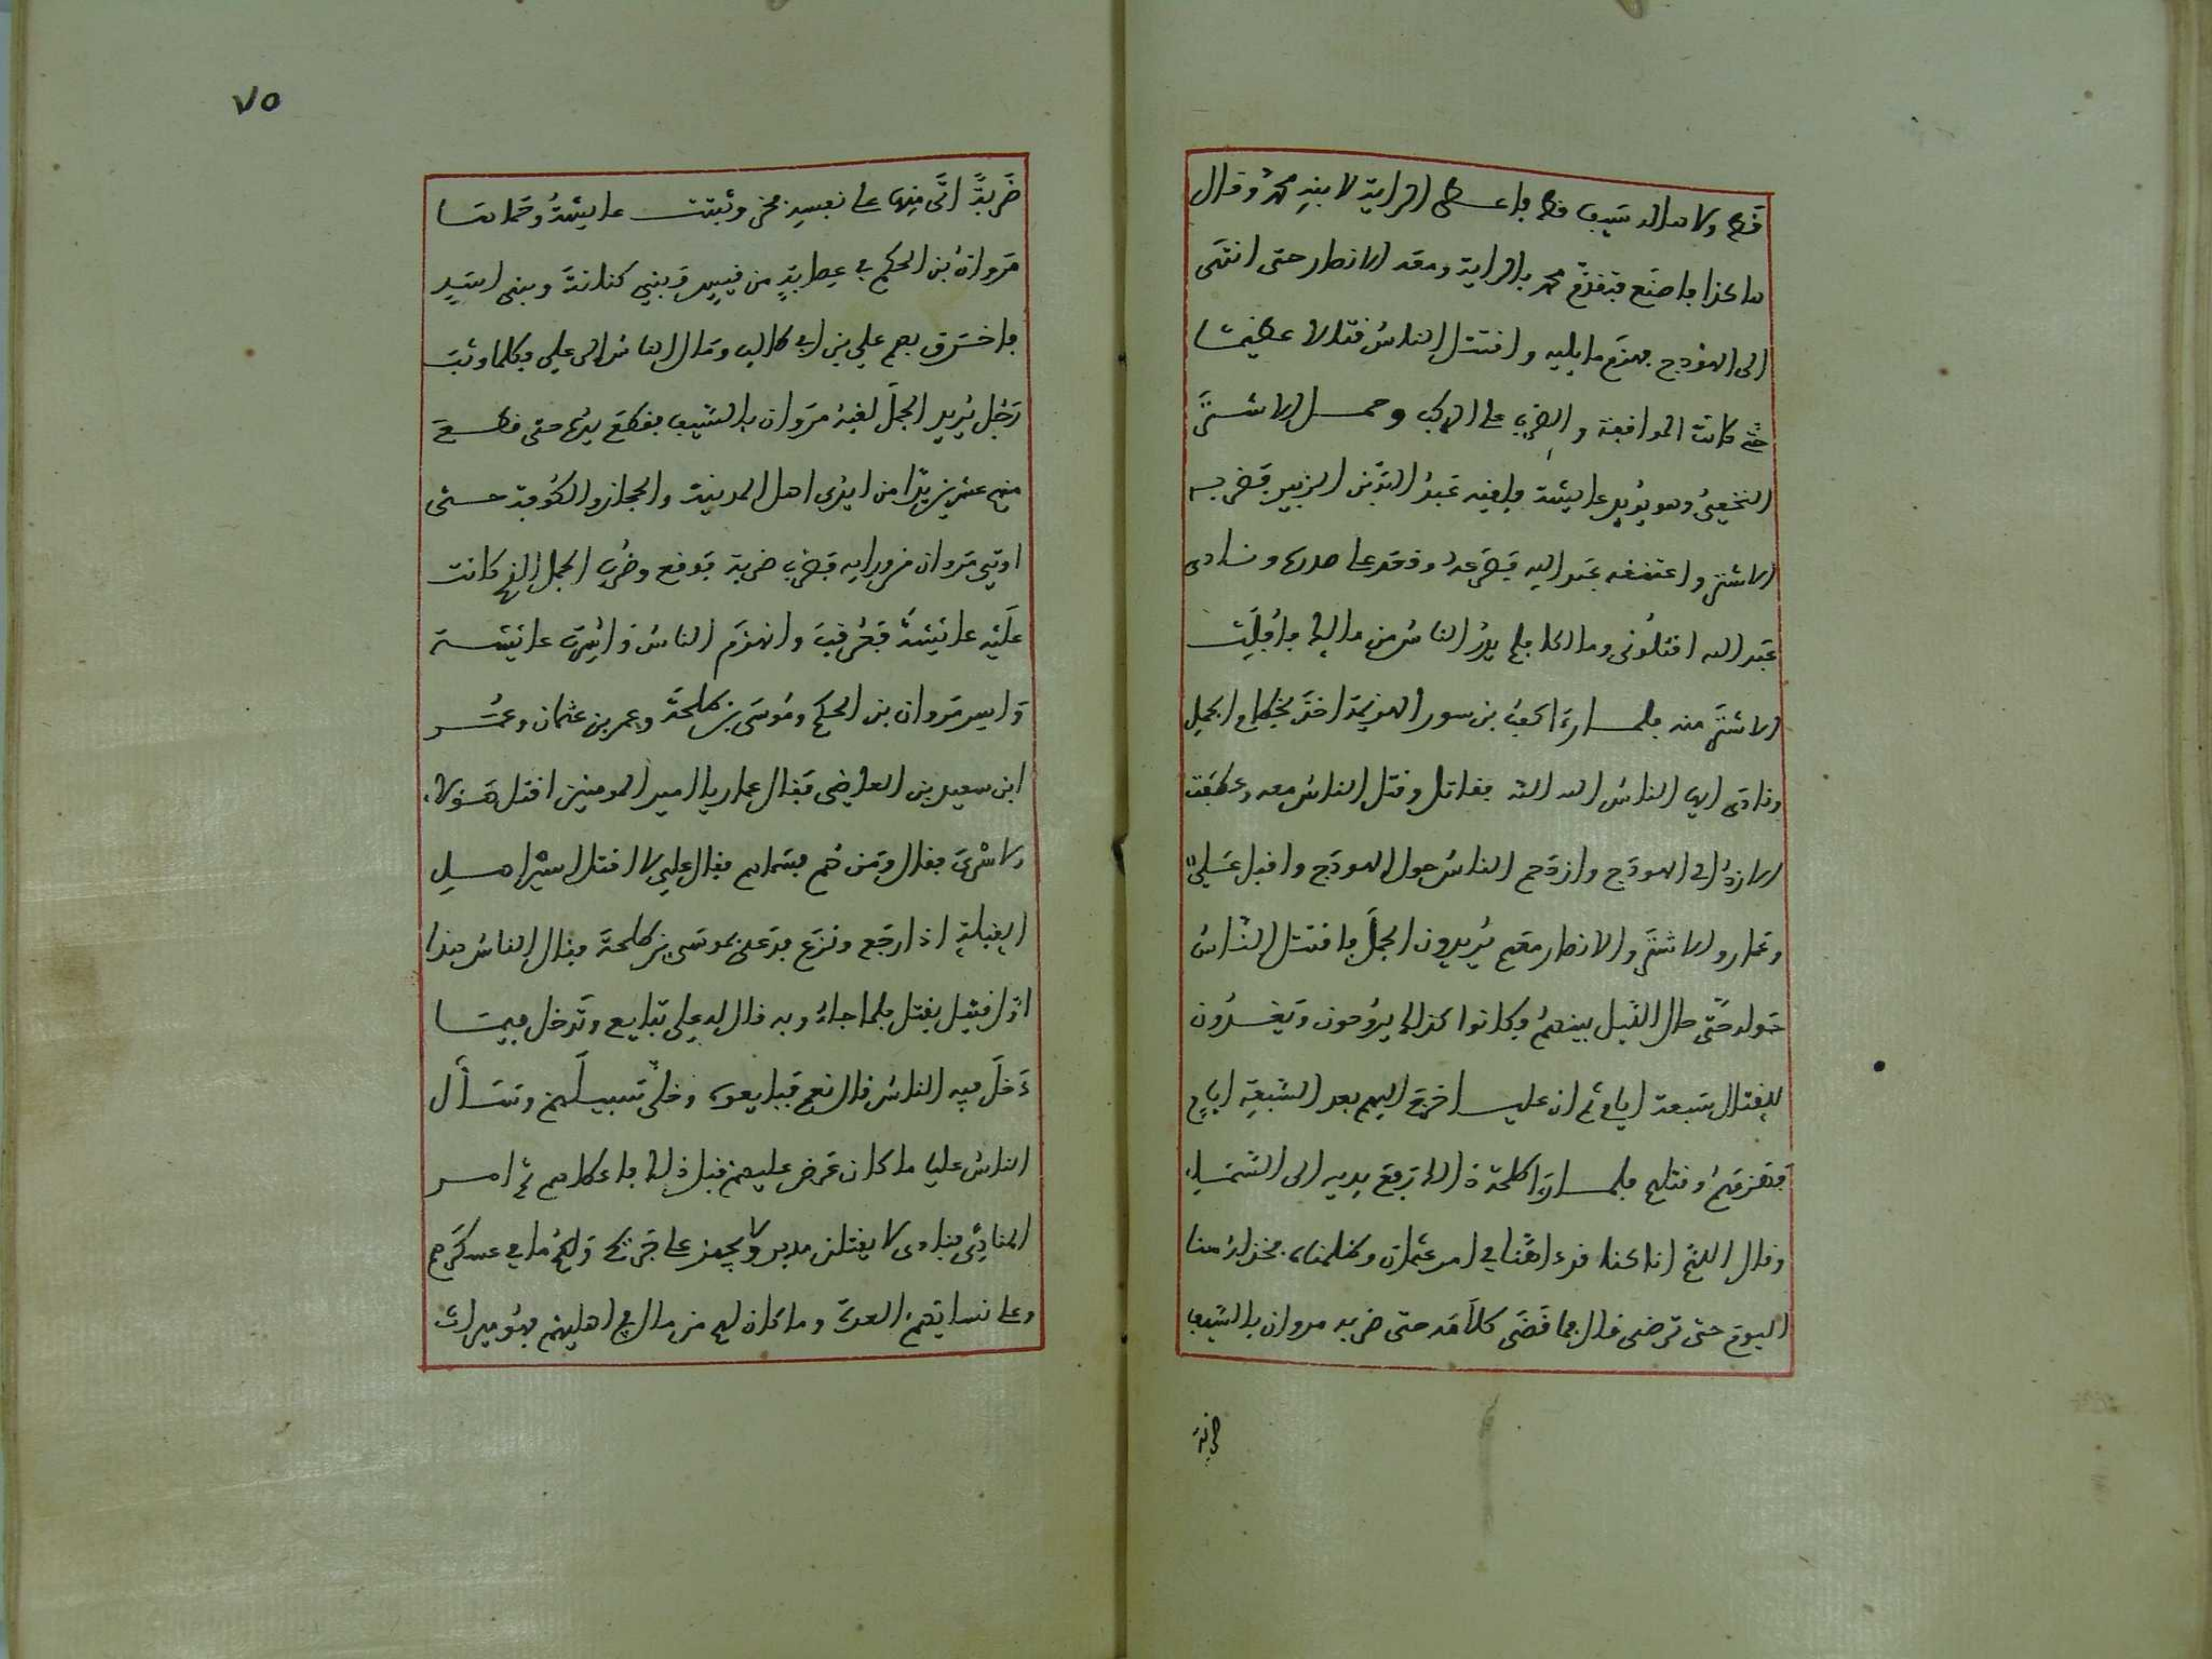 قط ولا مال له سيف قط فاعطى الراية لابنه محمد وقال
هاكذا فاصنع فتقدم محمد بالراية ومعه الانصار حتى انتهى
الى الهودج فهزم ما يليه واقتتل الناس قتالا عظيما
حتى كانت الموافقة والضرب على الركب وحمل الاشتر
النخعي وهو يريد عايشة فلقيه عبد الله بن الزبير فضربه
الاشتر واعتنقه عبد الله فصرعه وقعد على صدره ونادى
عبد الله اقتلوني ومالكا فلم يدر الناس من مالك فافلت
الاشتر منه فلما راى كعب بن سور الهزيمة اخذ بخطام الجمل
ونادى ايها الناس الله الله فقاتل وقتل الناس معه وعطفت
الازد الى الهودج وازدحم الناس حول الهودج واقبل علي
وعمار والاشتر والانصار معهم يريدون الجمل فاقتتل الناس
حوله حتى حال الليل بينهم وكانوا كذلك يروحون ويغدون
للقتال سبعة ايام ثم ان عليا خرج اليهم بعد السبعة ايام
فهزمهم وقتلهم فلما راى طلحة ذالك رفع يديه الى السماء
وقال اللهم انا كنا قد داهنا في امر عثمان وظلمناه فخذ له منا
اليوم حتى ترضى قال فما قضى كلامه حتى ضربه مروان بالسيف
ضربة
٧٥
ضربة اتى منها على نفسه فخر وثبتت عايشة وحماها
مروان بن الحكم في عصابة من قيس وبني كنانة وبني اسد
فاحدق بهم علي بن ابي طالب ومال الناس الى علي وكلما وثب
رجل يريد الجمل لقيه مروان بالسيف فقطع يده حتى قطع
منهم عشرين يدا من ايدي اهل المدينة والحجاز والكوفة حتى
اوتي مروان من ورايه فضرب ضربة فوقع وضرب الجمل الذي كانت
عليه عايشة فعرقب وانهزم الناس واسرت عايشة
واسر مروان بن الحكم وموسى بن طلحة وعمر بن عثمان وعمر
ابن سعيد بن العاصي فقال عمار يا امير المومنين اقتل هؤلاء
الاسرى فقال ومن هم فسماهم فقال علي لا اقتل اسير اهل
القبلة اذا رجع ونزع فدعى بموسى بن طلحة فقال الناس هذا
اول قتيل يقتل فلما جاءوا به قال له علي تبايع وتدخل فيما
دخل فيه الناس قال نعم فبايعوه وخلى سبيلهم وسأل
الناس عليا ما كان عرض عليهم قبل ذلك فاعطاهم ثم امر
المنادي فنادى لا يقتلن مدبر ولا يجهز على جريح ولكم ما في عسكرهم
وعلى نسايهم العدة وما كان لهم من مال في اهليهم فهو ميراث